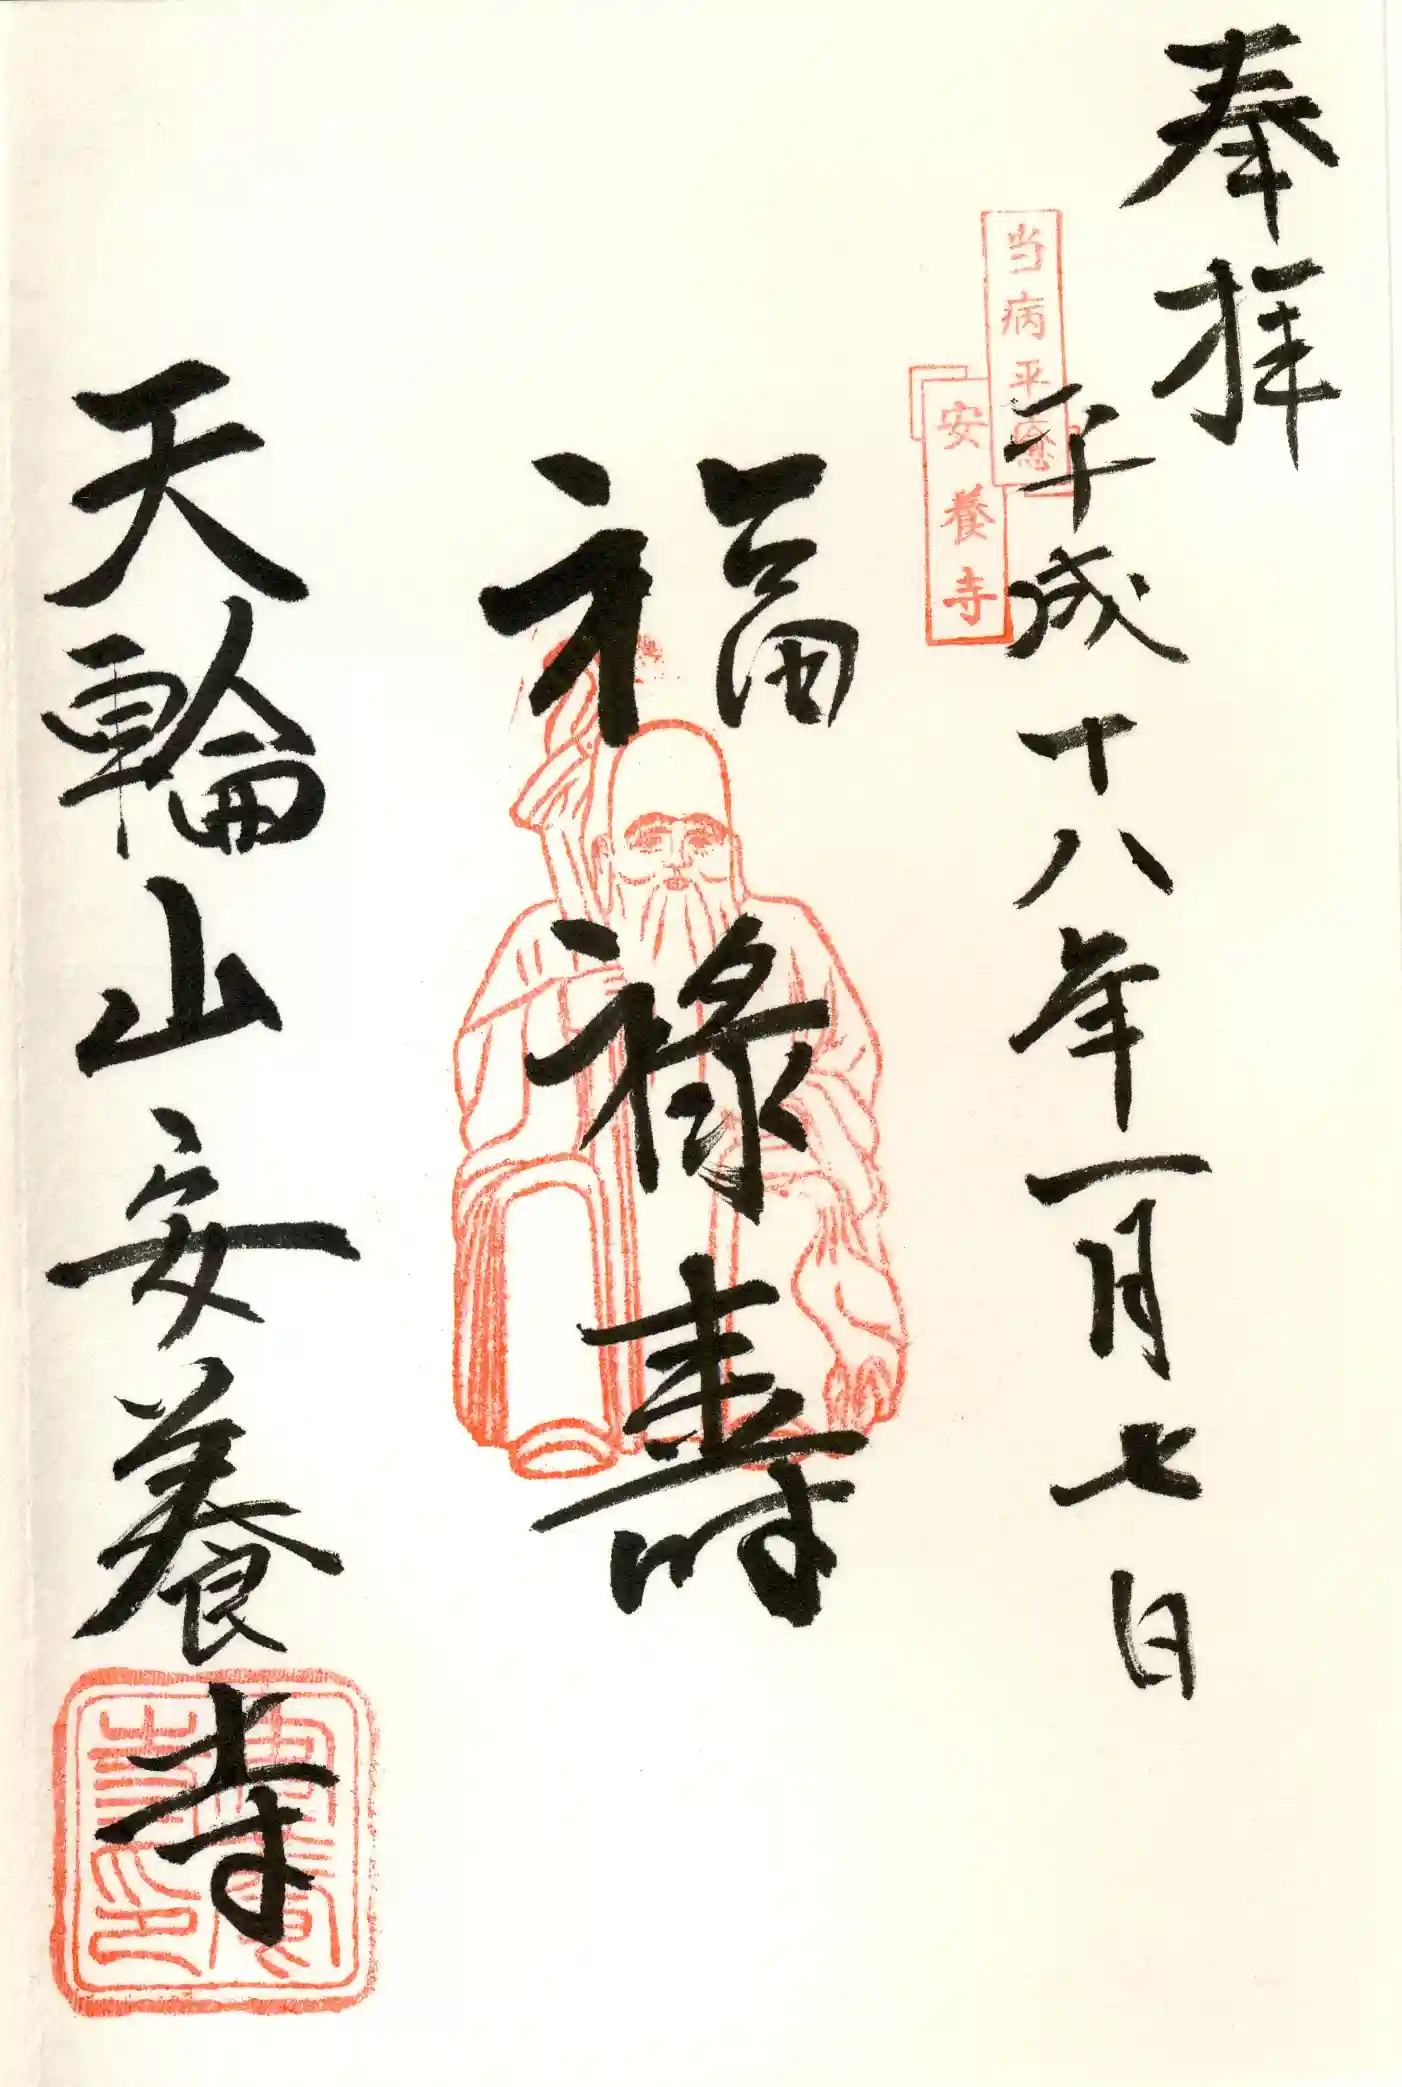 奉拝
平成十八年一月七日
当病平癒
安養寺
福禄寿
天輪山安養寺